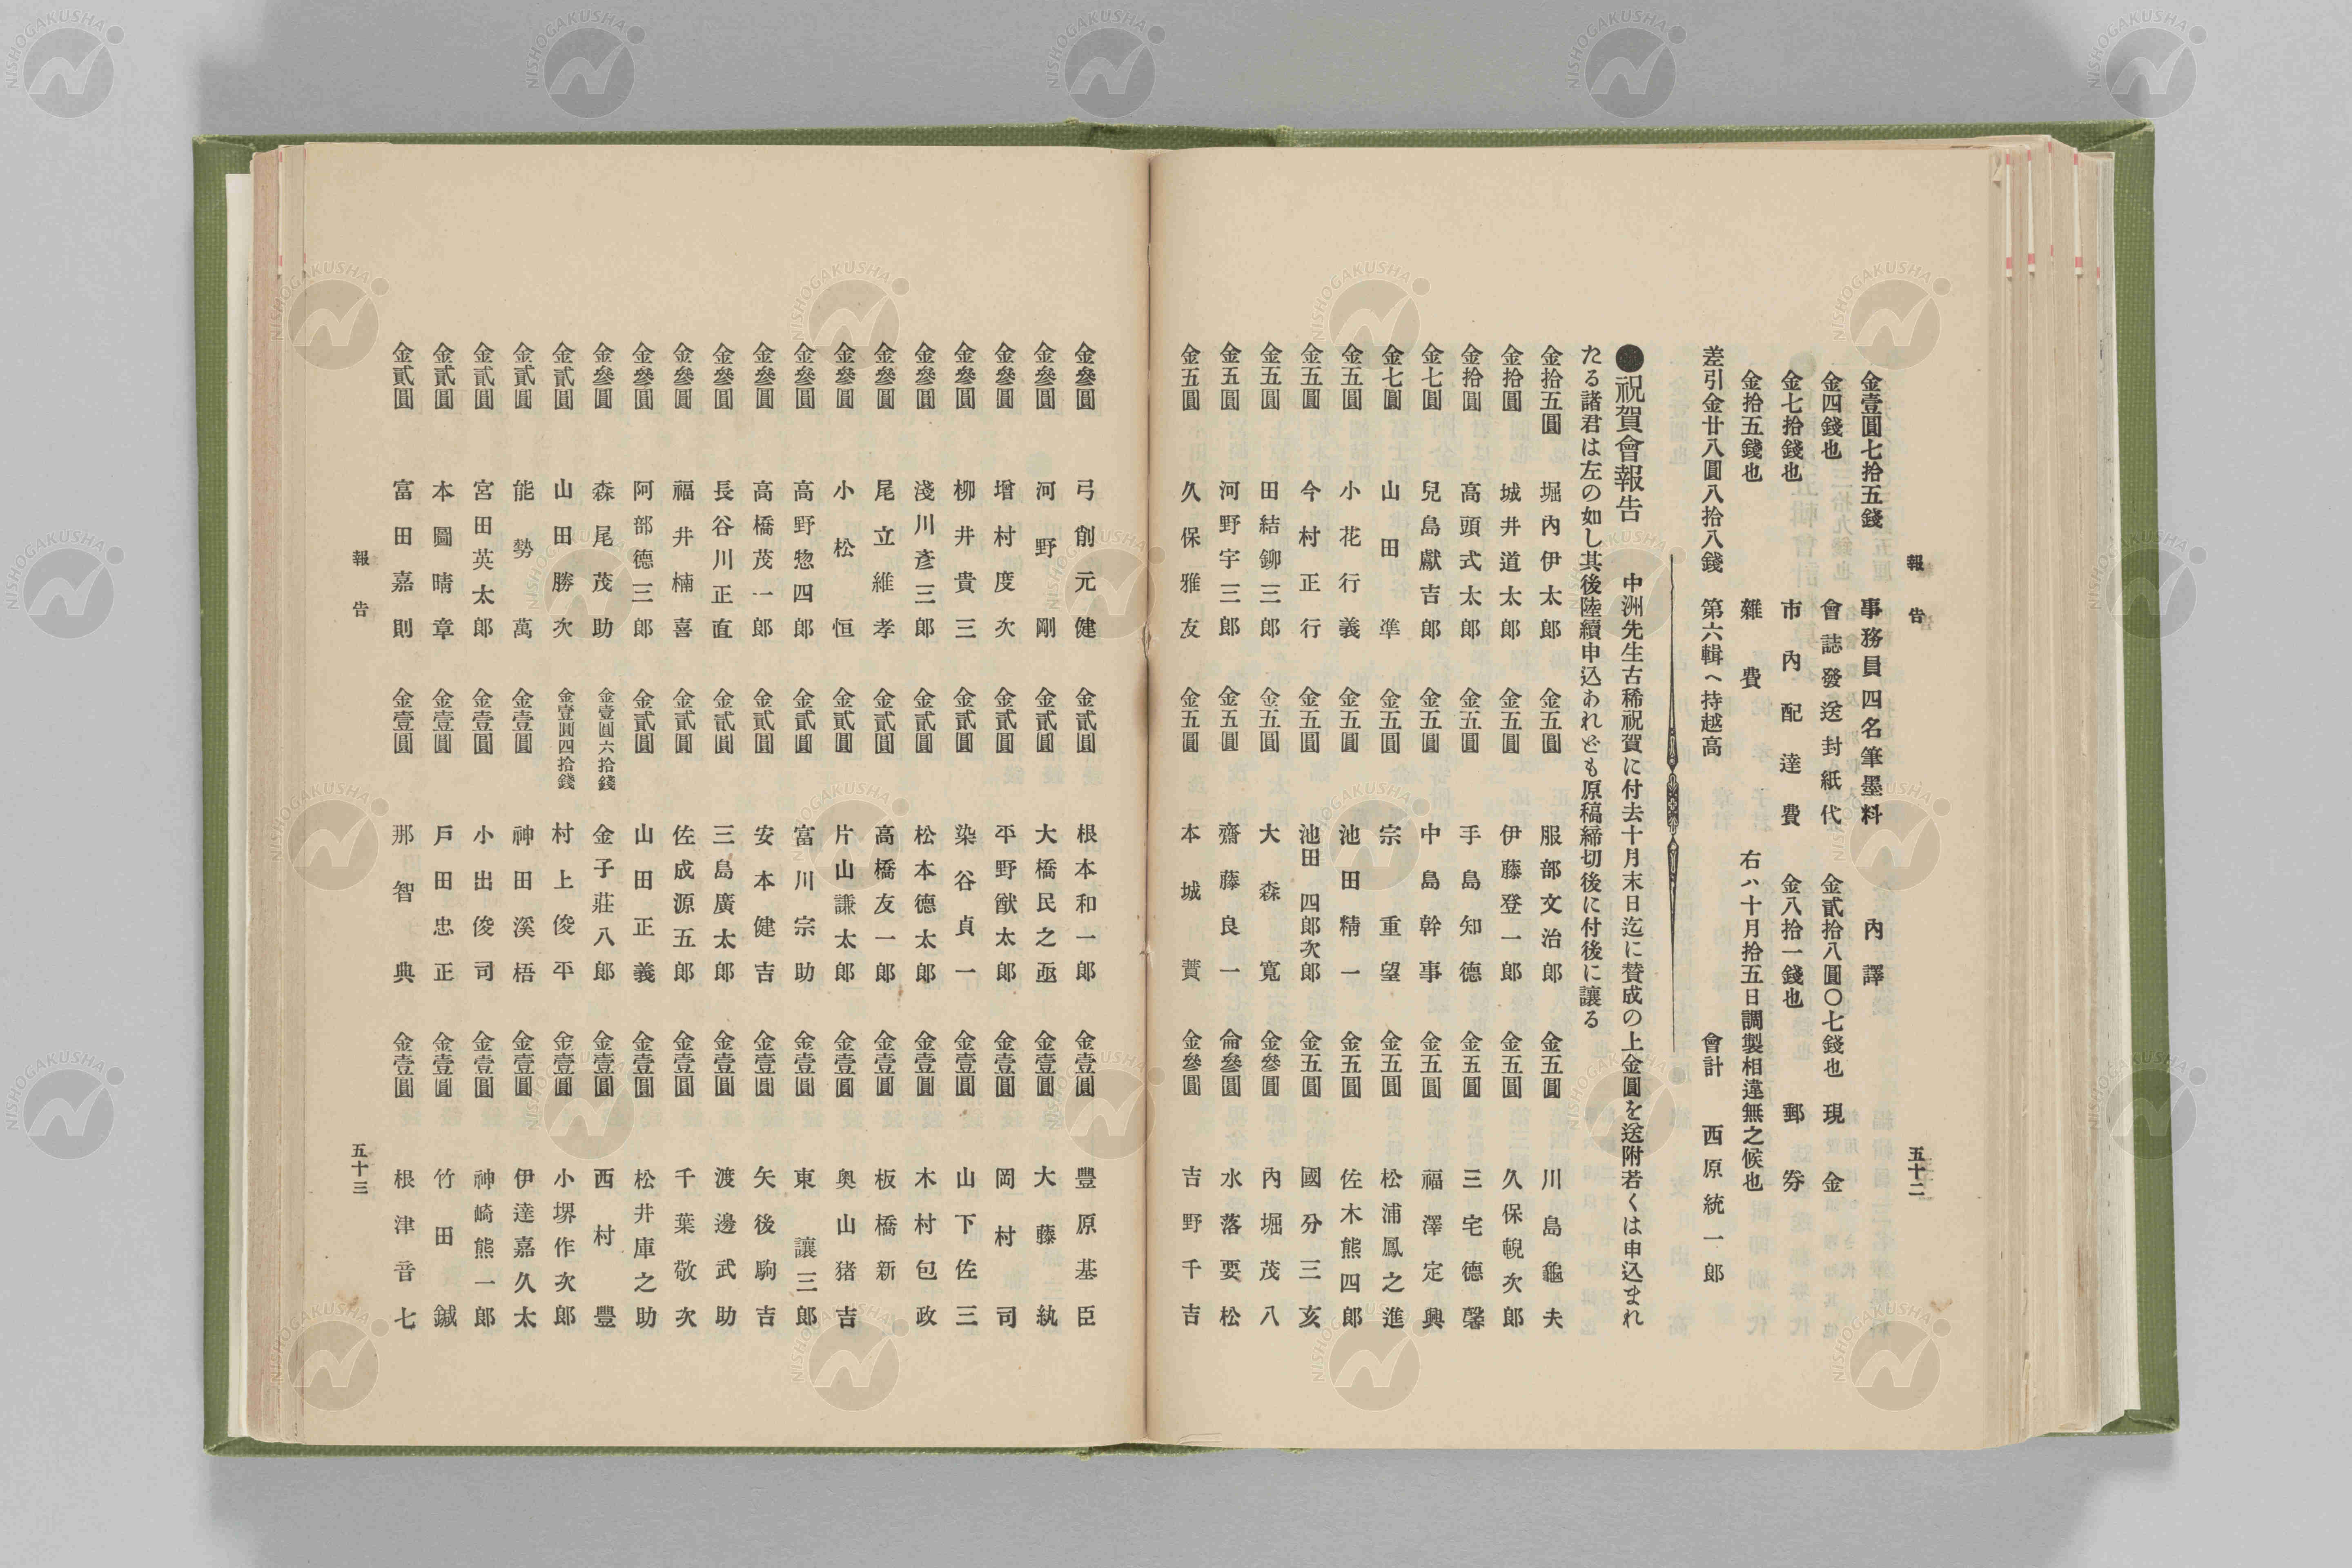 報告
五十二
金壹圓七拾五錢 事務員四名筆墨料
金四錢也 會誌發送封紙代
金七拾錢也 市內配達費
金拾五錢也 雜費
差引金廿八圓八拾八錢 第六輯ヘ持越高
內譯
金貳拾八圓〇七錢也 現金
金八拾一錢也 郵劵
右ハ十月拾五日調製相違無之候也
會計 西原統一郎
●祝賀會報告 中洲先生古稀祝賀に付去十月末日迄に賛成の上金圓を送附若くは申込まれ
たる諸君は左の如し其後陸續申込あれども原稿締切後に付後に讓る
金拾五圓 堀內伊太郎
金拾圓 城井道太郎
金拾圓 高頭式太郎
金七圓 兒島獻吉郎
金七圓 山田準
金五圓 小花行義
金五圓 今村正行
金五圓 田結鉚三郎
金五圓 河野宇三郎
金五圓 久保雅友
金五圓 服部文治郎
金五圓 伊藤登一郎
金五圓 手島知德
金五圓 中島幹事
金五圓 宗重望
金五圓 池田精一
金五圓 池田四郎次郎
金五圓 大森寬
金五圓 齋藤良一
金五圓 本城蕡
金五圓 川島龜夫
金五圓 久保輗次郎
金五圓 三宅德馨
金五圓 福澤定興
金五圓 松浦鳳之進
金五圓 佐木熊四郎
金五圓 國分三亥
金參圓 內堀茂八
侖參圓 水落要松
金參圓 吉野千吉
金參圓 弓削元健
金參圓 河野剛
金參圓 增村度次
金參圓 柳井貴三
金參圓 淺川彥三郎
金參圓 尾立維孝
金參圓 小松恒
金參圓 高野惣四郎
金參圓 高橋茂一郎
金參圓 長谷川正直
金參圓 福井楠喜
金參圓 阿部德三郎
金參圓 森尾茂助
金貳圓 山田勝次
金貳圓 能勢萬
金貳圓 宮田英太郎
金貳圓 本圖晴章
金貳圓 富田嘉則
金貳圓 根本和一郎
金貳圓 大橋民之亟
金貳圓 平野猷太郎
金貳圓 染谷貞一
金貳圓 松本德太郎
金貳圓 高橋友一郎
金貳圓 片山謙太郎
金貳圓 富川宗助
金貳圓 安本健吉
金貳圓 三島廣太郎
金貳圓 佐成源五郎
金貳圓 山田正義
金壹圓六拾錢 金子莊八郎
金壹圓四拾錢 村上俊平
金壹圓 神田溪梧
金壹圓 小出俊司
金壹圓 戶田忠正
金壹圓 那智典
金壹圓 豐原基臣
金壹圓 大藤紈
金壹圓 岡村司
金壹圓 山下佐三
金壹圓 木村包政
金壹圓 板橋新
金壹圓 奧山猪吉
金壹圓 東讓三郎
金壹圓 矢後駒吉
金壹圓 渡邊武助
金壹圓 千葉敬次
金壹圓 松井庫之助
金壹圓 西村豐
金壹圓 小堺作次郎
金壹圓 伊達嘉久太
金壹圓 神崎熊一郎
金壹圓 竹田鍼
金壹圓 根津音七
報告
五十三
NISHOGAKUSHA